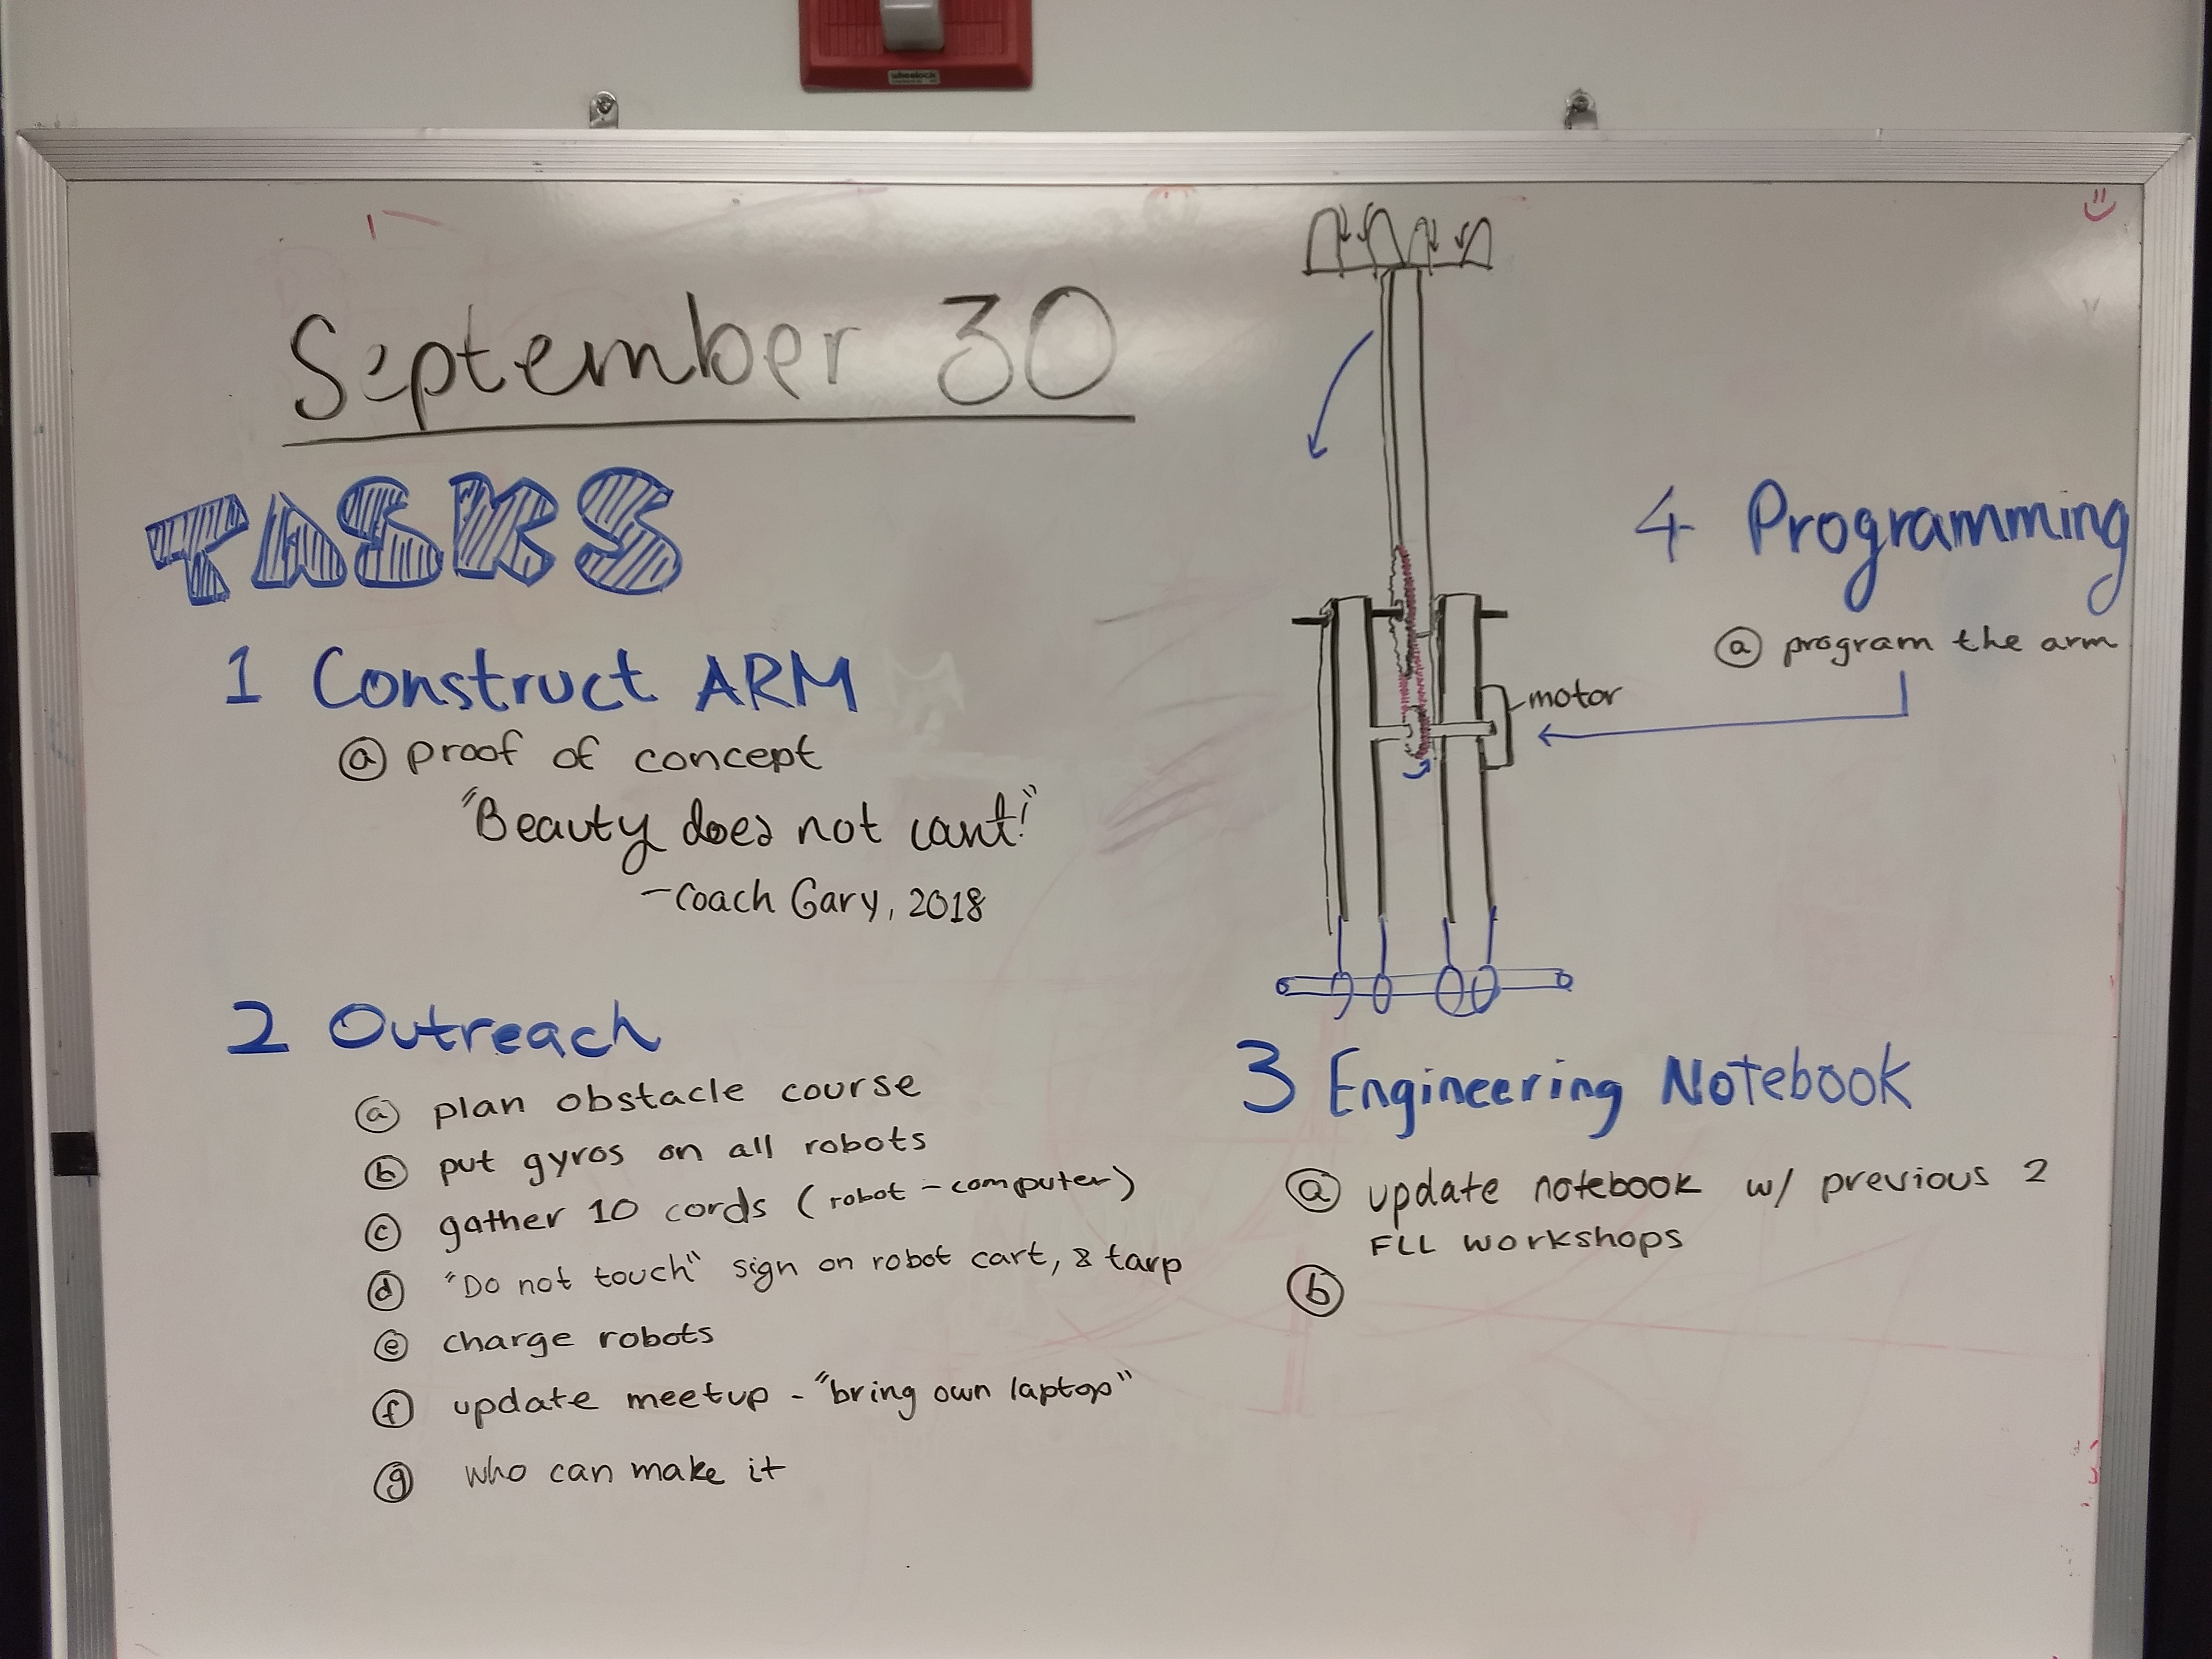 wheelock
September 30
TASKS
1 Construct ARM
ⓐ proof of concept
"Beauty does not cant!"
-Coach Gary, 2018
2 Outreach
ⓐ plan obstacle course
ⓑ put gyros on all robots
ⓒ gather 10 cords (robot-computer)
ⓓ "Do not touch" sign on robot cart, & tarp
ⓔ charge robots
ⓕ update meetup - "bring own laptop"
ⓖ who can make it
motor
3 Engineering Notebook
ⓐ update notebook w/ previous 2
FLL workshops
ⓑ
4 Programming
ⓐ program the arm